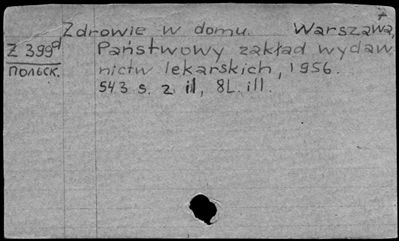 Zdrowie w domu. Warszawa,
Z 399d Państwowy zakład wydaw
польск. nictw lekarskich, 1956.
543 s. z il, 8L. ill.